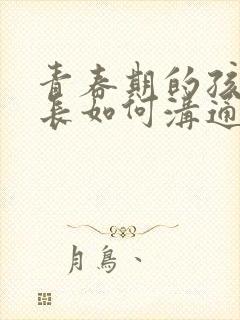 青春期的孩
長如何溝通
月鳥、